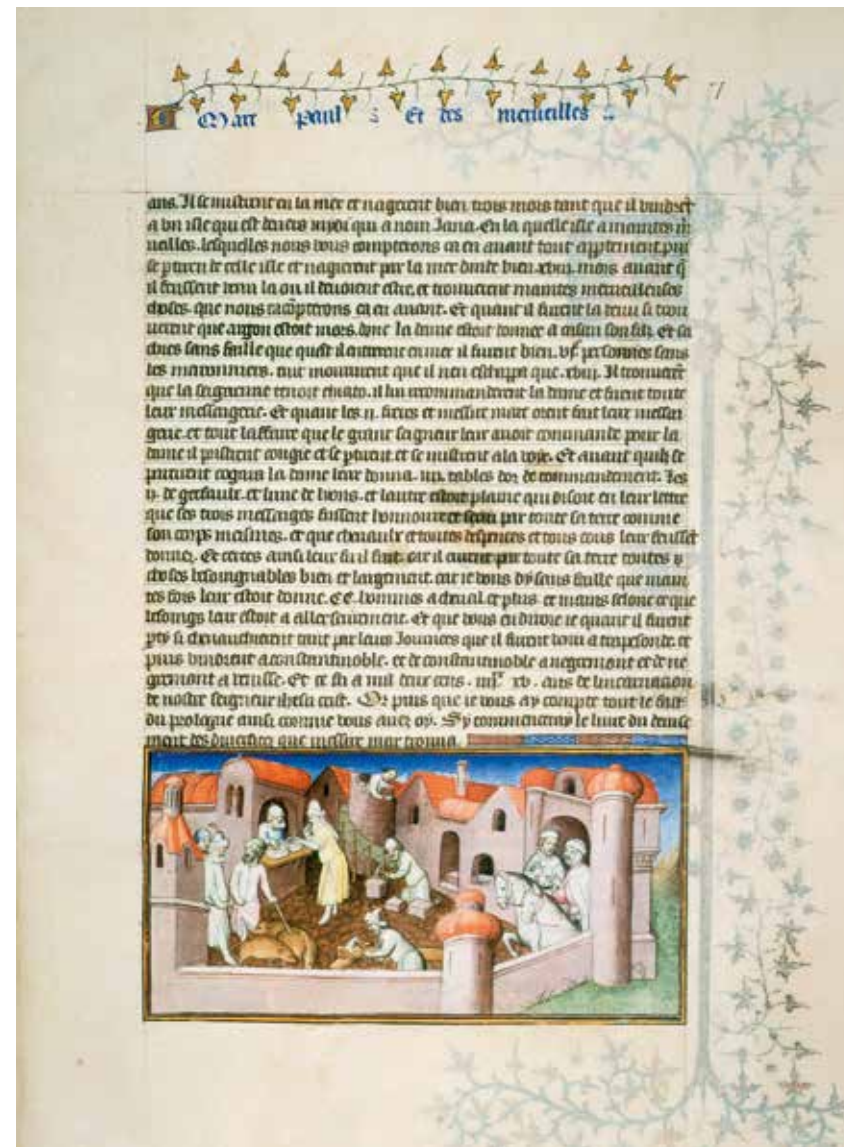 Marc Paul Et des merueilles
ans. Il se mistrent en la mer et nagierent bien trois mois tant que il vindret
a vn isle qui est deuers mydi qui a nom Iana. En la quelle isle a maintes m
ueilles. lesquelles nous vous compterons ca en auant tout appertement. puis
se ptirent de celle isle et nagierent par la mer dinde bien. xviij. mois auant q
il feussent venu la ou il deuoient estre. et trouuerent maintes merueilleuses
choses. que nous racopterons ca en auant. Et quant il furent la venu si trou
uerent que argon estoit mors. donc la dame estoit donnee a casan son filz. Et sa
chies sans faille que quāt il entrerent en mer il furent bien. vjc. personnes sans
les maronniers. tuit moururent que il nen eschappa que. xviij. Il trouuerēt
que la seignourie tenoit chiato. il lui recommanderent la dame et firent toute
leur messaigerie. Et quant les ij. freres et messire marc orent fait leur messai
gerie. et tout laffaire que le grant seigneur leur auoit commande pour la
dame il pristrent congie et se ptirent et se mistrent a la voie. Et auant quilz se
partirent cogatra la dame leur donna. iiij. tables dor de commandement. les
ij. de gerfault. et lune de lyons. et lautre estoit plaine qui disoit en leur lettre
que ses trois messaiges fussent honnoure et serui par toute sa terre comme
son corps meismes. et que cheuaulx et toutes despences et tous cous leur feusset
donnez. Et certes ainsi leur fu il fait. car il eurent par toute sa terre toutes
choses besoingnables bien et largement. car ie vous dy sans faille que main
tes fois leur estoit donne. CC. hommes a cheual et plus. et mains selonc ce que
besoings leur estoit a aller seurement. Et que vous en diroie ie quant il furent
pti si cheuaucherent tant par leurs Iournees que il furent venu a trapesonde. et
puis vindrent a constantinoble. et de constantinoble a negrepont et de ne
grepont a venisse. Et ce fu a mil deux cens. iiijxx xv. ans de lincarnation
de nostre seigneur ihesu crist. Or puis que ie vous ay compte tout le fait
du prologue ainsi comme vous auez oy. Sy commenceray le liure du deuise
ment des diuersitez que messire marc trouua.